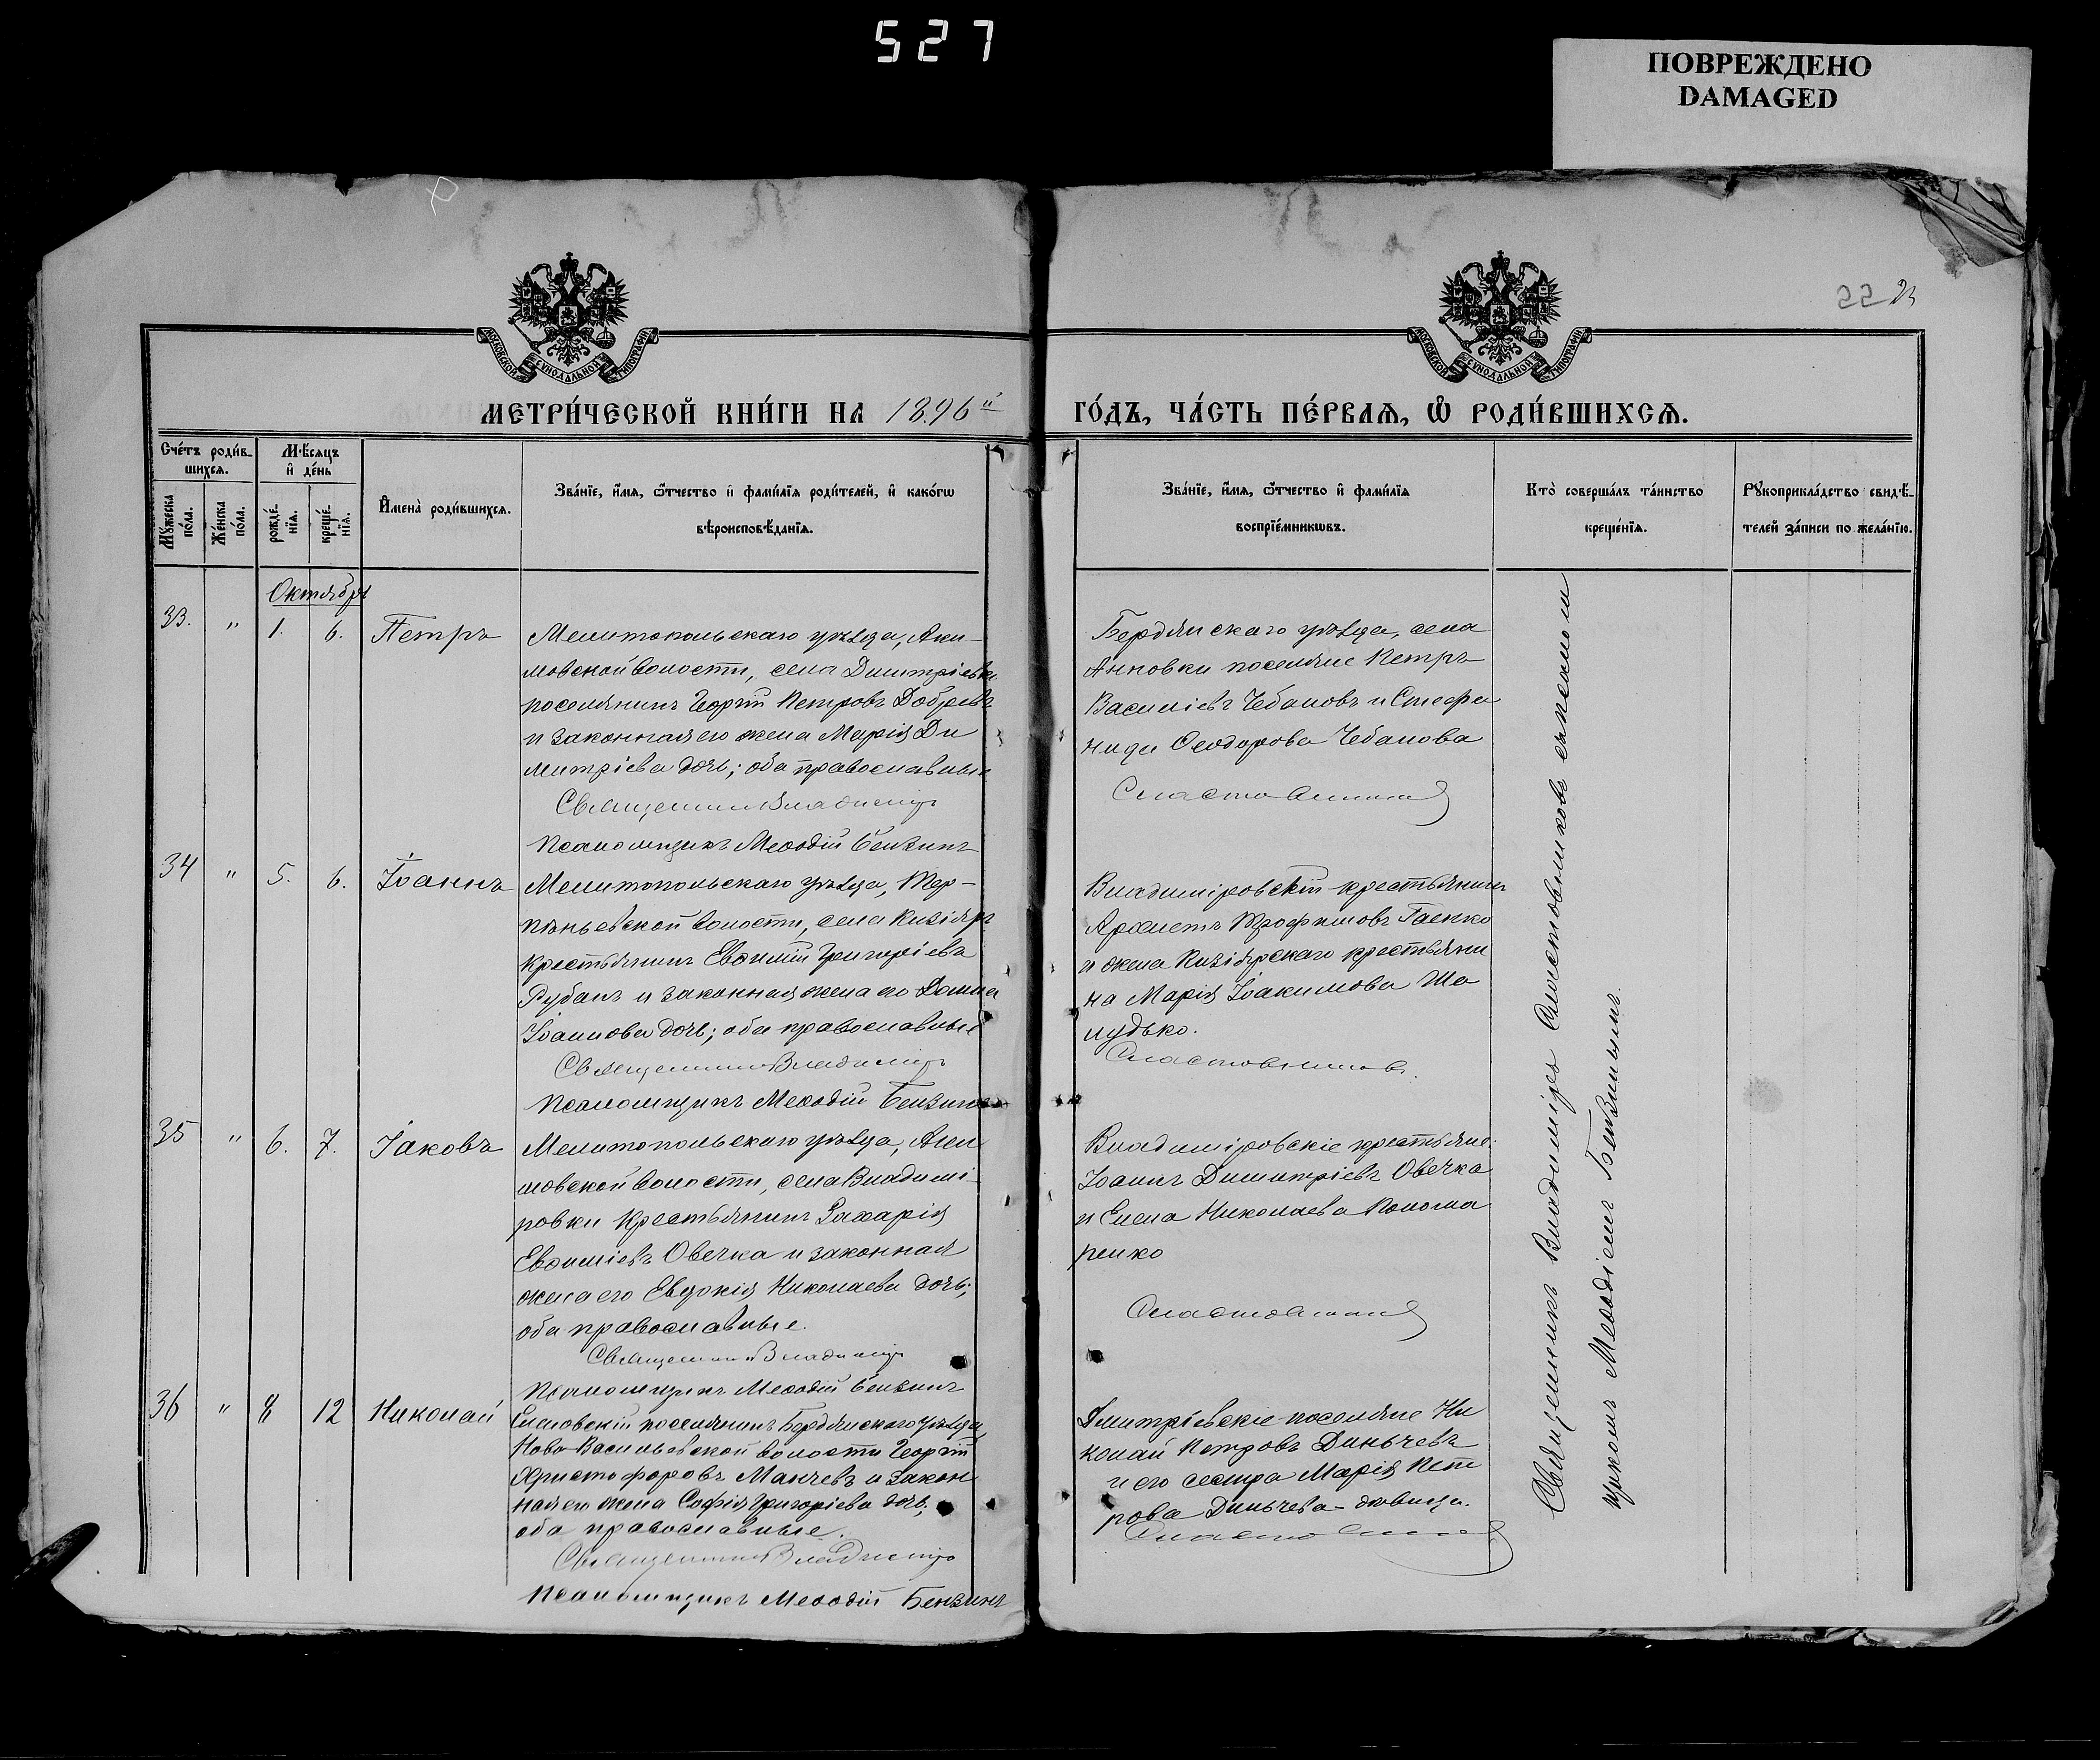 527
ПОВРЕЖДЕНО
DAMAGED
22
МОСКОВСКОЙ СѴНОДАЛЬНОЙ ТИПОГРАФІИ
МОСКОВСКОЙ СѴНОДАЛЬНОЙ ТИПОГРАФІИ
МЕТРИ́ЧЕСКОЙ КНИ́ГИ НА 1896й ГО́ДЪ, ЧА́СТЬ ПЕ́РВАЯ, Ѡ РОДИ́ВШИХСЯ.
Сче́тъ роди́в-
шихся.
Мѹжеска по́ла.
Же́нска по́ла.
Мѣсяцъ
и де́нь
рожде́-
нїя.
креще́-
нїя.
Имена̀ роди́вшихся.
Зва́нїе, и́мя, ѻ́тчество и фами́лїя роди́телей, и како́гѡ
вѣроисповѣданїя.
Зва́нїе, и́мя, ѻ́тчество и фами́лїя
воспрїе́мникѡвъ.
Кто̀ соверша́лъ та́инство
креще́нїя.
Рѹкоприкла́дство свидѣ-
телей за́писи по жела́нїю.
Октября
33. " 1. 6. Петръ
Мелитопольскаго уѣзда, Аки-
мовской волости, села Димитріевки
поселянинъ Георгій Петровъ Добревъ
и законная его жена Марія Ди
митріева дочь; оба православные
Священникъ Владиміръ
Псаломщикъ Меѳодій Бензинъ
Бердянскаго уѣзда, села
Анновки поселяне Петръ
Василіевъ Чебановъ и Стефа
нида Ѳеодорова Чебанова
Сластовниковъ
34 " 5. 6. Іоаннъ
Мелитопольскаго уѣзда, Тер-
пѣньевской волости, села Кизіяръ
крестьянинъ Евѳимій Григоріевъ
Рубанъ и законная жена его Домна
Іоаннова дочь; оба православные
Священникъ Владиміръ
Псаломщикъ Меѳодій Бензинъ
Владиміровскій крестьянинъ
Трофимовъ Гаенко
и жена Кизіярскаго крестьяни
на Марія Іоакимова Ша
лудько.
Сластовниковъ
35 " 6. 7. Іаковъ
Мелитопольскаго уѣзда, Аки
мовской волости, села Владимі-
ровки крестьянинъ Захарія
Евѳиміевъ Овечка и законная
жена его Евдокія Николаева дочь;
оба православные.
Священникъ Владиміръ
Псаломщикъ Меѳодій Бензинъ
Владиміровскіе крестьяне:
Іоаннъ Димитріевъ Овечка
и Елена Николаева Понома
ренко
Сластовниковъ
36 " 8 12 Николай
поселянинъ Бердянскаго уѣзда,
Ново-Васильевской волости Георгій
Христофоровъ Манчевъ и закон
ная его жена Софія Григоріева дочь;
оба православные.
Священникъ Владиміръ
Псаломщикъ Меѳодій Бензинъ
Димитріевскіе поселяне Ни
колай Петровъ Диньчевъ
и его сестра Марія Пет
рова Диньчева - дѣвица.
Сластовниковъ
Священникъ Владиміръ Сластовниковъ съ псалом
щикомъ Меѳодіемъ Бензинымъ.